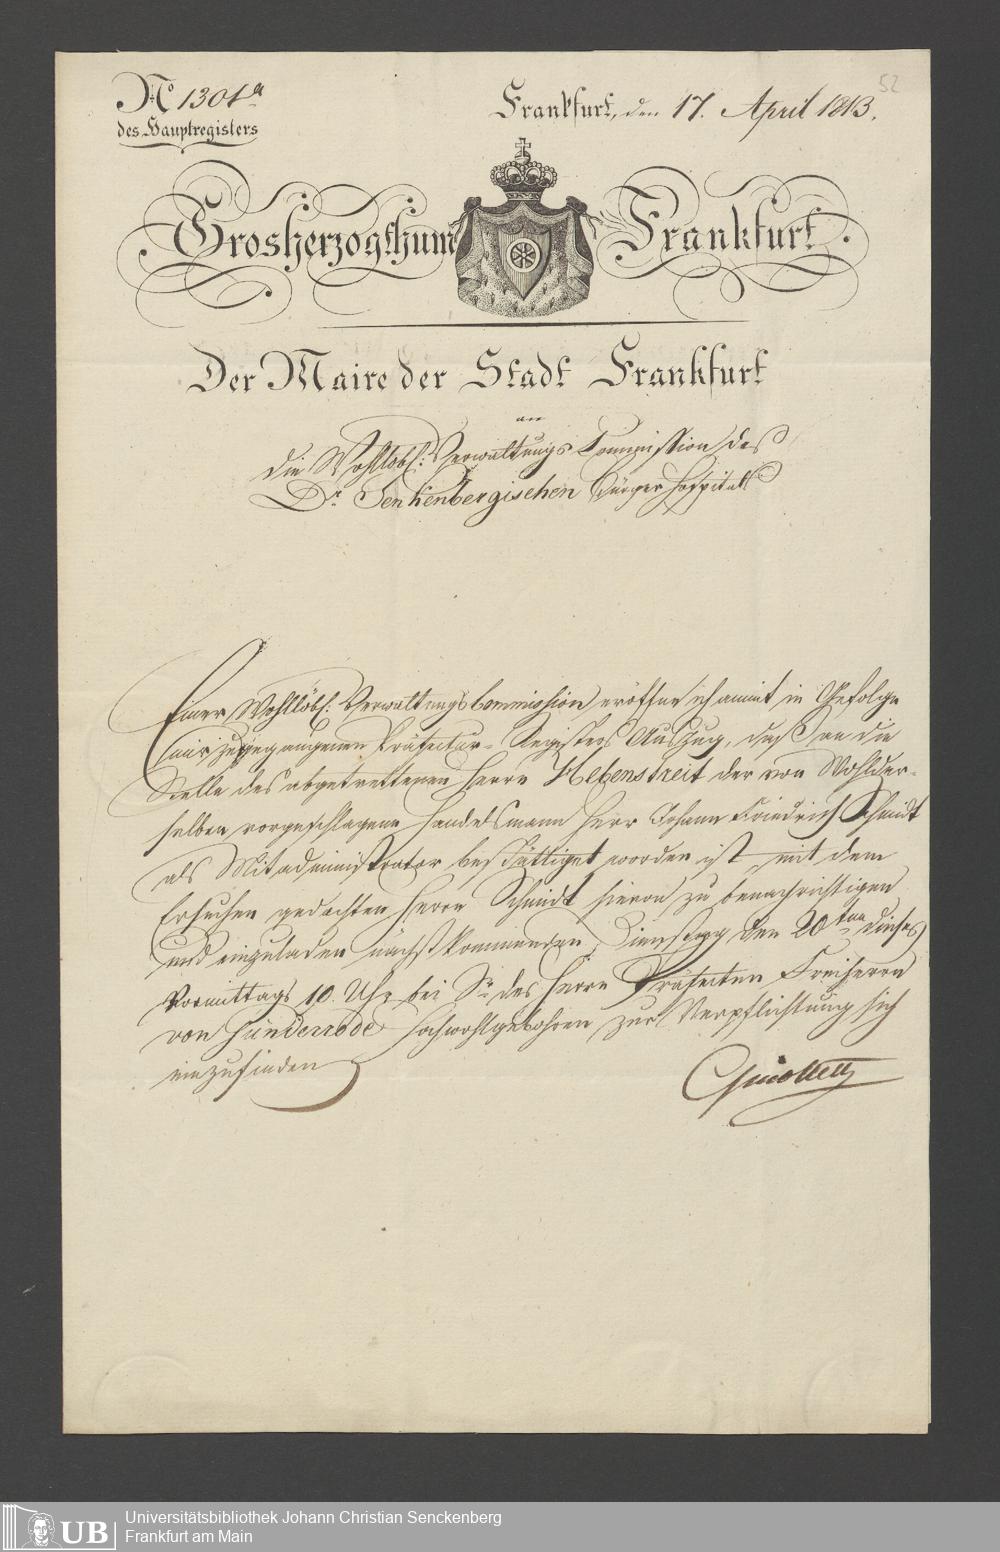 52
No 1301a
des Hauptregisters
Frankfurt, den 17. April 1813.
Grosherzogthum Frankfurt.
Der Maire der Stadt Frankfurt
an
die Wohllöbl: Verwaltungs Commission des
Dr. Senkenbergischen Bürger Hospitals
Einer Wohllöbl: Verwaltungs Commission eröffne ich anmit in Gefolge
mir zugegangenen Präfectur-Registers Auszug, daß an die
Stelle des abgetrettenen Herrn Hebenstreit der von Wohlder-
selben vorgeschlagene Handelsmann Herr Johann Friedrich Schmidt
als Mitadministrator bestättiget worden ist mit dem
Ersuchen gedachten Herrn Schmidt hievon zu benachrichtigen
und einzuladen nächstkommenden Dienstag den 20ten dieses
Vormittags 10. Uhr bei Sr. des Herrn Präfecten Freiherrn
von Günderrode Hochwohlgebohren zur Verpflichtung sich
einzufinden
Guiollett
UB
Universitätsbibliothek Johann Christian Senckenberg
Frankfurt am Main